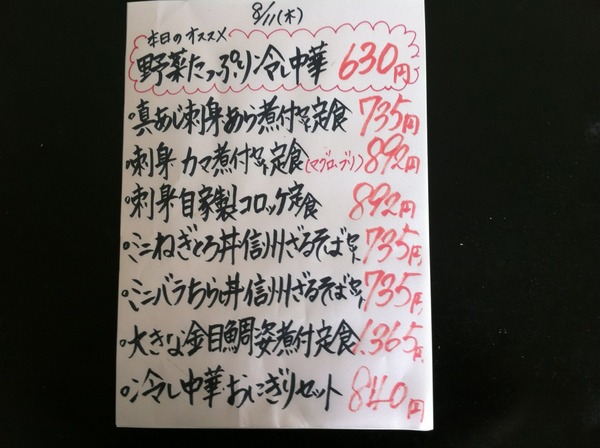 8/11(木)
本日のオススメ
野菜たっぷり冷し中華 630円
○真あじ刺身あら煮付セット定食 735円
○刺身カマ煮付セット定食(マグロ、ブリ) 892円
○刺身自家製コロッケ定食 892円
○ミニねぎとろ丼信州ざるそばセット 735円
○ミニバラちらし丼信州ざるそばセット 735円
○大きな金目鯛姿煮付定食 1.365円
○冷し中華おにぎりセット 840円